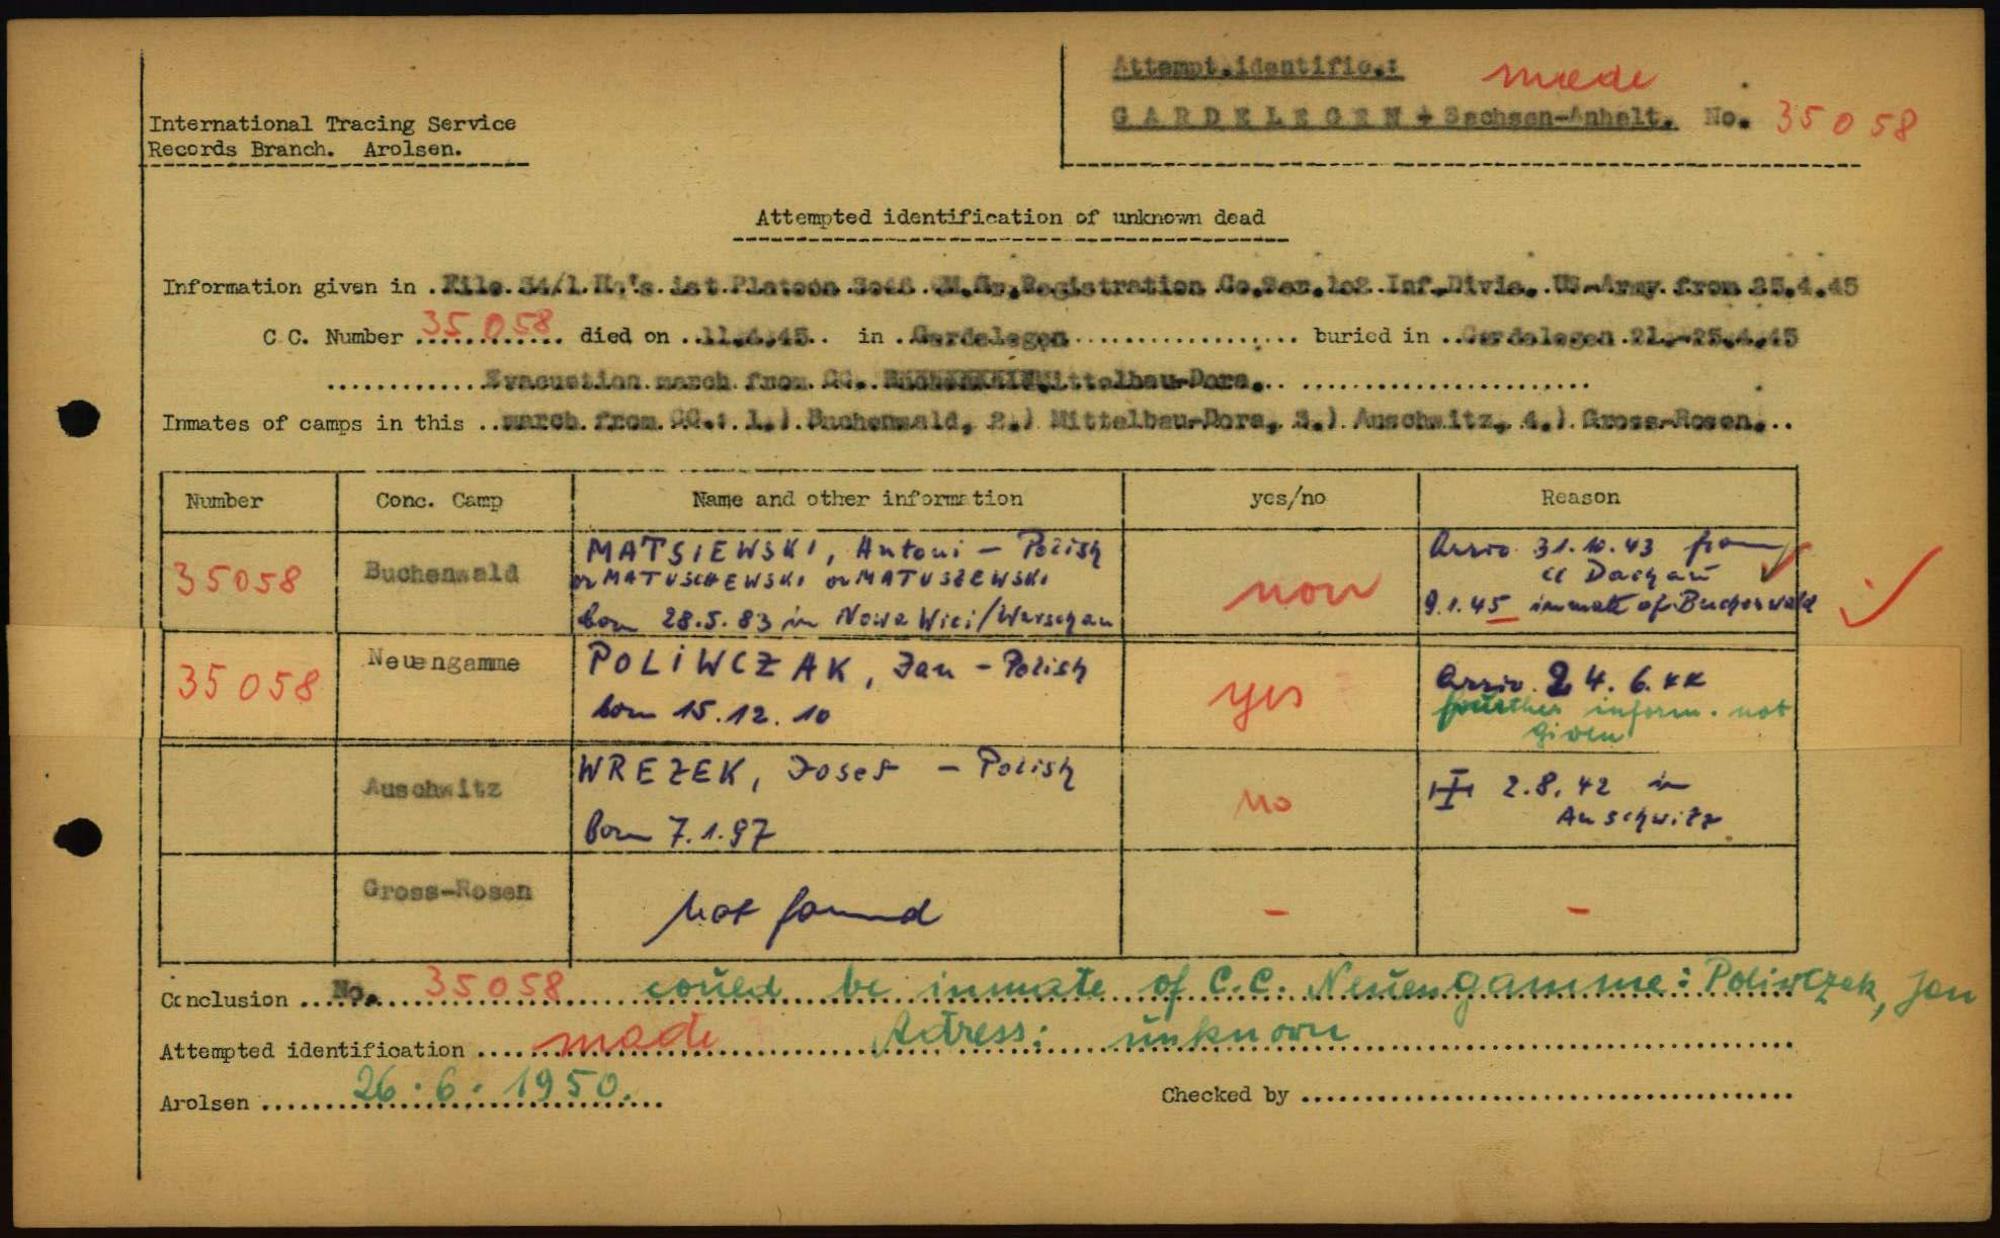 Attempt.identific.: made
G A R D E L E G E N + Sachsen-Anhalt. No. 35058
International Tracing Service
Records Branch. Arolsen.
Attempted identification of unknown dead
Information given in .File 34/1 Hq's 1st Platoon 3048 QM.Gr.Registration Co. 102 Inf.Divis. US-Army from 25.4.45
C.C. Number 35058 died on ..11.4.45.. in .Gardelegen buried in ..Gardelegen 21.-25.4.45
Evacuation march from CC. Mittelbau-Dora.
Inmates of camps in this ..march from CC.: 1.) Buchenwald, 2.) Mittelbau-Dora, 3.) Auschwitz, 4.) Gross-Rosen...
Number Conc. Camp Name and other information yes/no Reason
35058 Buchenwald MATSIEWSKI, Antoni - Polish
or MATUSCHEWSKI or MATUSZEWSKI
born 28.5.83 in Nowa Wici/Warschau
Arriv. 31.10.43 from
CC Dachau
9.1.45 inmate of Buchenwald
35058 Neuengamme POLIWCZAK, Jan - Polish
born 15.12.10
yes
Arriv. 24.6.44
fourther inform. not
given
Auschwitz WREZEK, Josef - Polish
born 7.1.97
no
2.8.42 in
Auschwitz
Gross-Rosen not found - -
Conclusion ....No. 35058 could be inmate of C.C. Neuengamme: Poliwczek, Jan
Attempted identification .... made Adress: unknown
Arolsen 26.6.1950.
Checked by